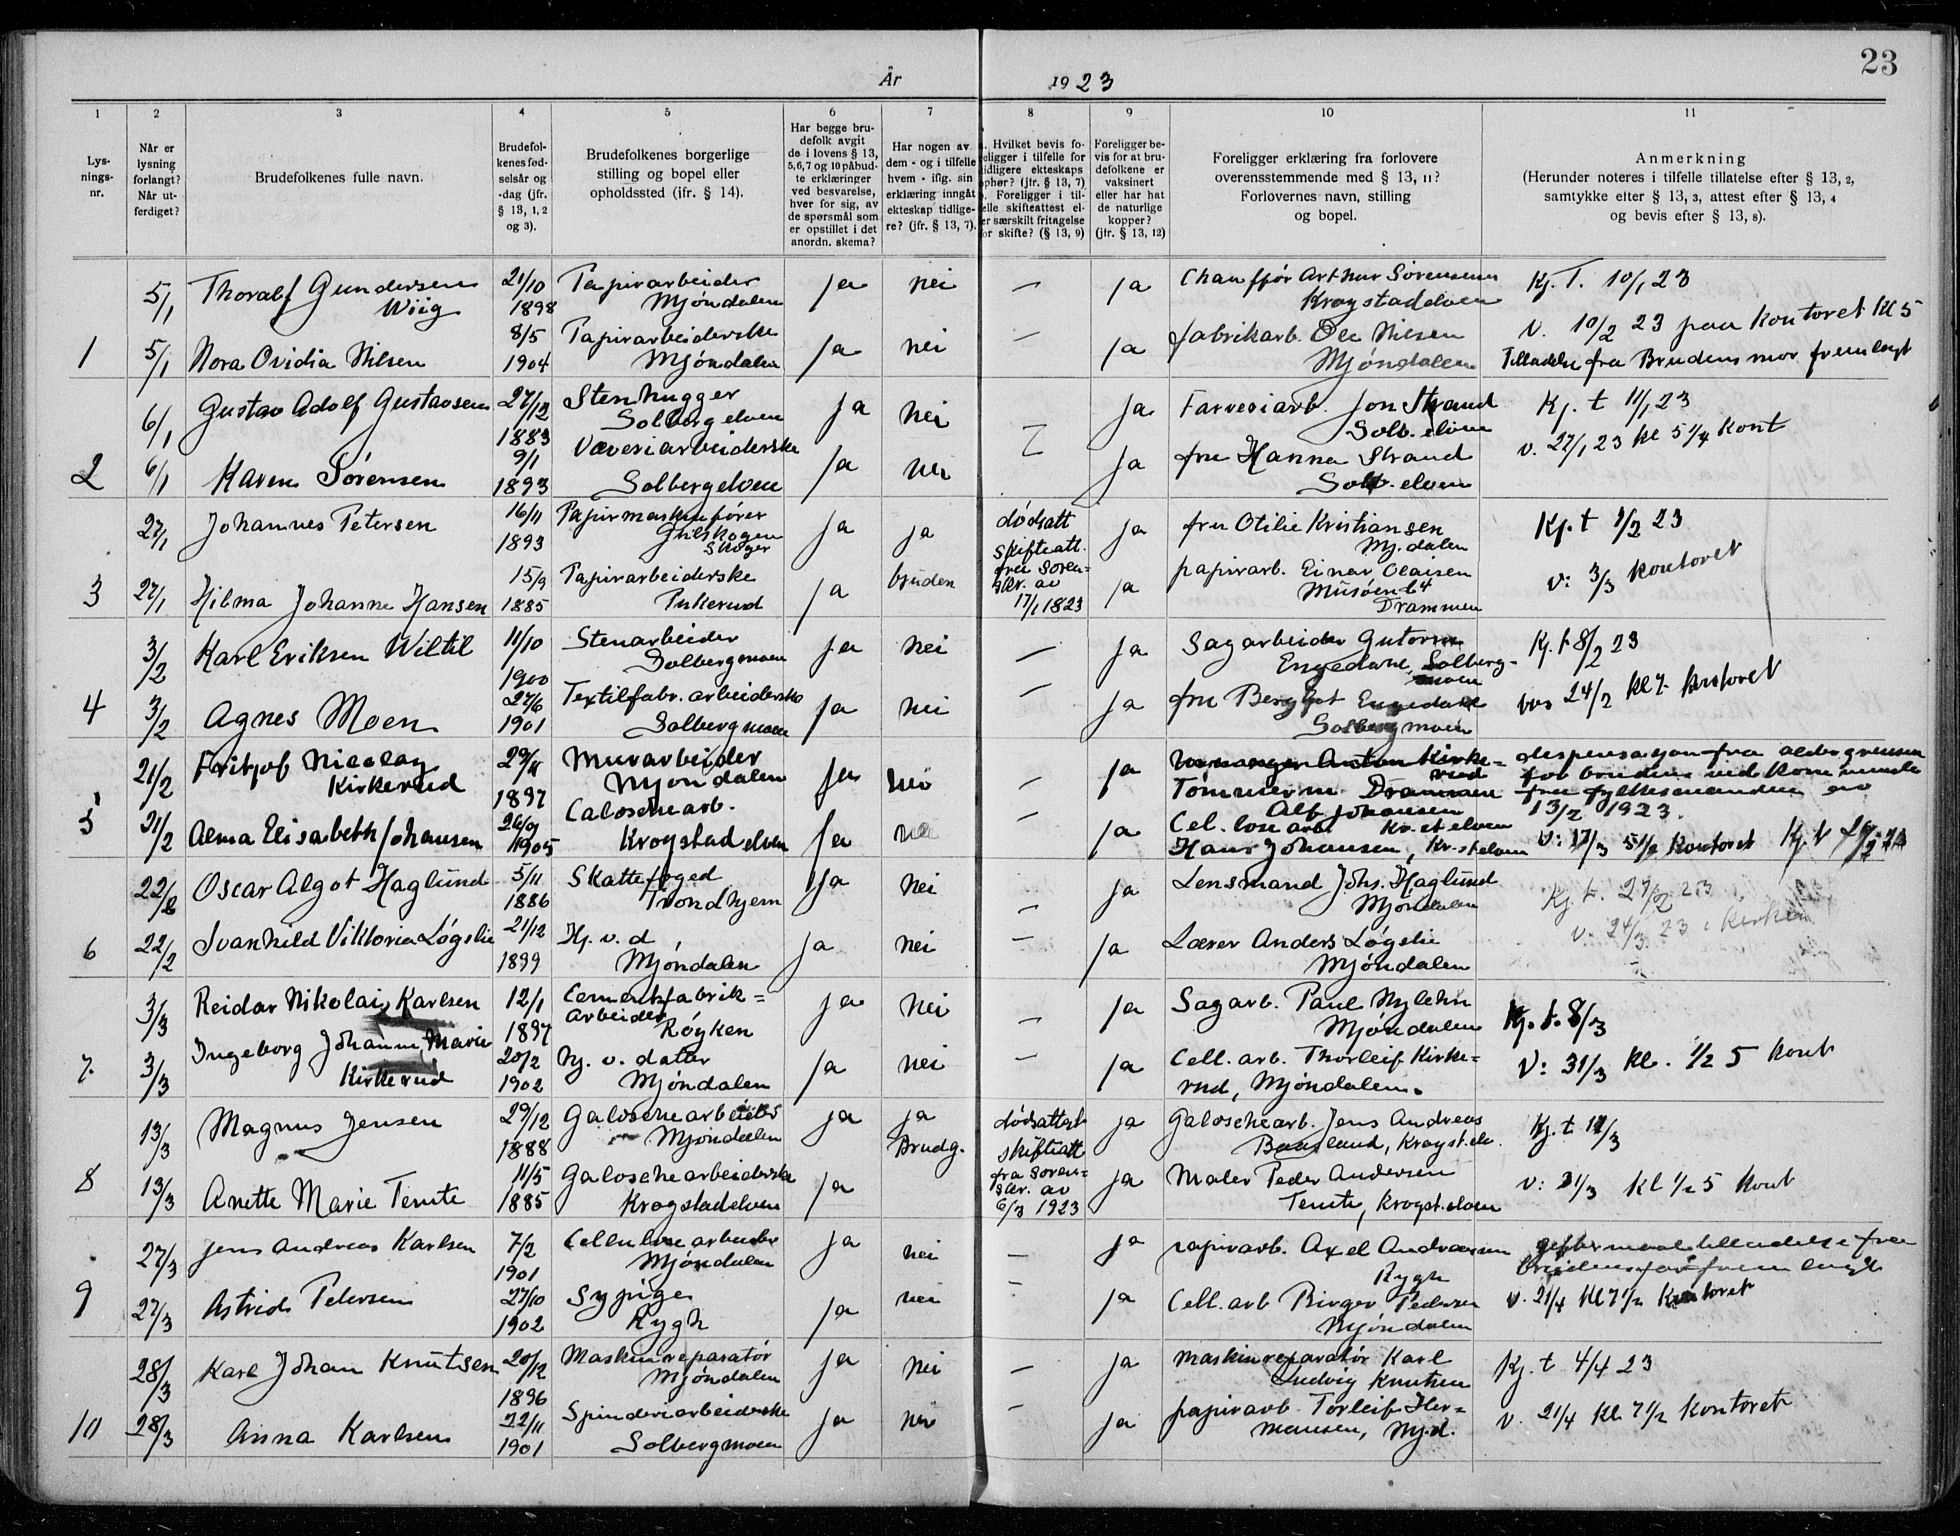 23
År 1923
1 2 3 4 5 6 7 8 9 10 11
Lys-
nings-
nr.
Når er
lysning
forlangt?
Når ut-
ferdiget?
Brudefolkenes fulle navn.
Brudefol-
kenes fød-
selsår og
-dag (jfr.
§ 13, 1, 2
og 3).
Brudefolkenes borgerlige
stilling og bopel eller
opholdssted (ifr. § 14).
Har begge bru-
defolk avgit
de i lovens § 13,
5,6,7 og 10 påbud-
te erklæringer
ved besvarelse,
hver for sig, av
de spørsmål som
er opstillet i det
anordn. skema?
Har nogen av
dem - og i tilfelle
hvem - iflg. sin
erklæring inngåt
ekteskap tidlige-
re? (jfr. § 13, 7).
Hvilket bevis fo-
religger i tilfelle for
tidligere ekteskaps
ophør? (jfr. § 13, 7)
Foreligger i til-
felle skifteattest el-
ler særskilt fritagelse
for skifte? (§ 13, 9)
Foreligger be-
vis for at bru-
defolkene er
vaksinert
eller har hat
de naturlige
kopper?
(jfr. § 13, 12)
Foreligger erklæring fra forlovere
overensstemmende med § 13, 11?
Forlovernes navn, stilling
og bopel.
Anmerkning
(Herunder noteres i tilfelle tillatelse efter § 13, 2,
samtykke efter § 13, 3, attest efter § 13, 4
og bevis efter § 13, 8).
5/1 Thoralf Gundersen Wiig 21/10 1898 Papirarbeider Mjøndalen ja nei — ja Chauffør Arthur Sørensen Krogstadelven Kj. T. 10/1 23
1 5/1 Nora Ovidia Nilsen 8/5 1904 Papirarbeiderske Mjøndalen ja nei — ja fabrikarb. Ole Nilsen Mjøndalen v. 10/2 23 paa kontoret kl 5
Tilladelse fra Brudens mor fremlagt
6/1 Gustav Adolf Gustavsen 27/12 1883 Stenhugger Solbergelven ja nei — ja Farveriarb. Jon Strand Solb. elven Kj. t 11/1 23
2 6/1 Karen Sørensen 9/1 1893 Væveriarbeiderske Solbergelven ja nei ja fru Hanna Strand Solb. elven v. 27/1 23 kl 5 1/4 kont
27/1 Johannes Petersen 16/11 1893 Papirmaskinfører Gulskogen Skoger ja ja dødsatt skifteatt. fra Soren- skr. av 17/1 1823 ja fru Otilie Kristiansen Mj.dalen Kj. t 1/2 23
3 27/1 Hilma Johanne Hansen 15/9 1885 Papirarbeiderske ja bruden ja papirarb. Einar Olaisen Drammen v: 3/3 kontoret
3/2 Karl Eriksen Wiltil 11/10 1900 Stenarbeider Solbergmoen ja nei — ja Sagarbeider Gutorm Engedahl, Solberg- moen Kj. t 8/2 23
4 3/2 Agnes Moen 27/6 1901 Textilfabr. arbeiderske Solbergmoen ja nei — ja fru Bergljot Engedahl Solbergmoen 24/2 kl 7 kontoret
21/2 Fritjof Nicolay Kirkerud 29/11 1897 Murarbeider Mjøndalen ja nei — ja Anton Kirke- rud Tømmerm. Drammen Alf Johansen Kr.st elven dispensasjon fra aldersgrensen
for bruden
fra fylkesmanden av
13/2 1923.
5 21/2 Alma Elisabeth Johansen 26/9 1905 Caloschearb. Krogstadelven ja nei — ja Cel. lose arb. Hans Johansen, Kr.stelven v: 17/3 5 1/2 kontoret Kj. t
22/2 Oscar Algot Haglund 5/11 1886 Skattefoged Trondhjem ja nei — ja Lensmand Johs. Haglund Mjøndalen Kj. t. 23
6 22/2 Svanhild Viktoria Løgslie 21/12 1899 Hj. v. d Mjøndalen ja nei — ja Lærer Anders Løgslie Mjøndalen v. 24/3 23 i kirken
3/3 Reidar Nikolai Karlsen 12/1 1897 Cementfabrik= arbeider Røyken ja nei — ja Sagarb. Paul Nylehn Mjøndalen Kj. t. 8/3
7. 3/3 Ingeborg Johanne Marie Kirkerud 20/2 1902 hj. v. datter Mjøndalen ja nei — ja Cell. arb. Thorleif Kirke= rud, Mjøndalen. V: 31/3 kl. 1/2 5 kont
13/3 Magnus Jensen 29/12 1888 Galoschearbeider Mjøndalen ja ja Brudg. dødsattest skifteatt fra Soren= skr. av 6/3 1923 ja Galoschearb. Jens Andreas Krogst.elv. Kj. t 12/3
8 13/3 Anette Marie Temte 11/5 1885 Galoschearbeiderske Krogstadelven ja ja Maler Peder Andersen Temte, Krogst.elven v: 31/3 kl 1/2 5 kont
27/3 Jens Andreas Karlsen 7/2 1901 Cellulosearbeider Mjøndalen ja nei — ja papirarb. Axel Andreassen Rygh giftermaalstilladelse fra
brudens far fremlagt
9 27/3 Astrid Petersen 27/10 1902 Sypige Rygh ja nei — ja Cell. arb Birger Pedersen Mjøndalen v. 21/4 kl 7 1/2 kontoret
28/3 Karl Johan Knutsen 20/12 1896 Maskinreparatør Mjøndalen ja nei — ja Maskinreparatør Karl Ludvig Knutsen Kj. t 4/4 23
10 28/3 Anna Karlsen 22/11 1901 Spinderiarbeiderske Solbergmoen ja nei — ja papirarb. Torleif Her= mansen, Mj.d. v. 21/4 kl 7 1/2 kontoret